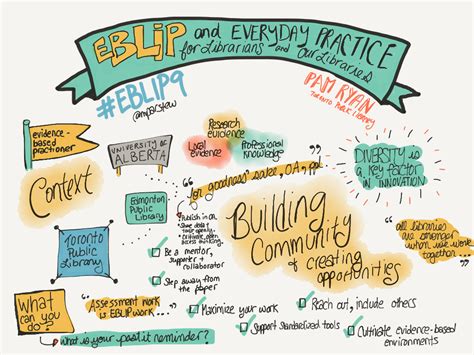 EBLIP and EVERYDAY PRACTICE
for Librarians and Our Libraries
#EBLIP9
PAM RYAN
TORONTO PUBLIC LIBRARY
evidence-
based
practioner
UNIVERSITY OF
ALBERTA
Research
evidence
Local
evidence
Professional
knowledge
DIVERSITY is
a KEY FACTOR
IN INNOVATION
Context
Edmonton
Public
Library
"for goodness' sakes, OA, ppl"
Publish in OA
Be a mentor,
supporter +
collaborator
Step away from
the paper
BUILDING
COMMUNITY
of creating
opportunities
all libraries
are stronger
when we work
together...
Toronto
Public
Library
What
can you
do?
"Assessment work is
EBLIP work..."
what is your post it reminder?
Maximize your work
Support standardized tools
Reach out, include others
Cultivate evidence-based
environments